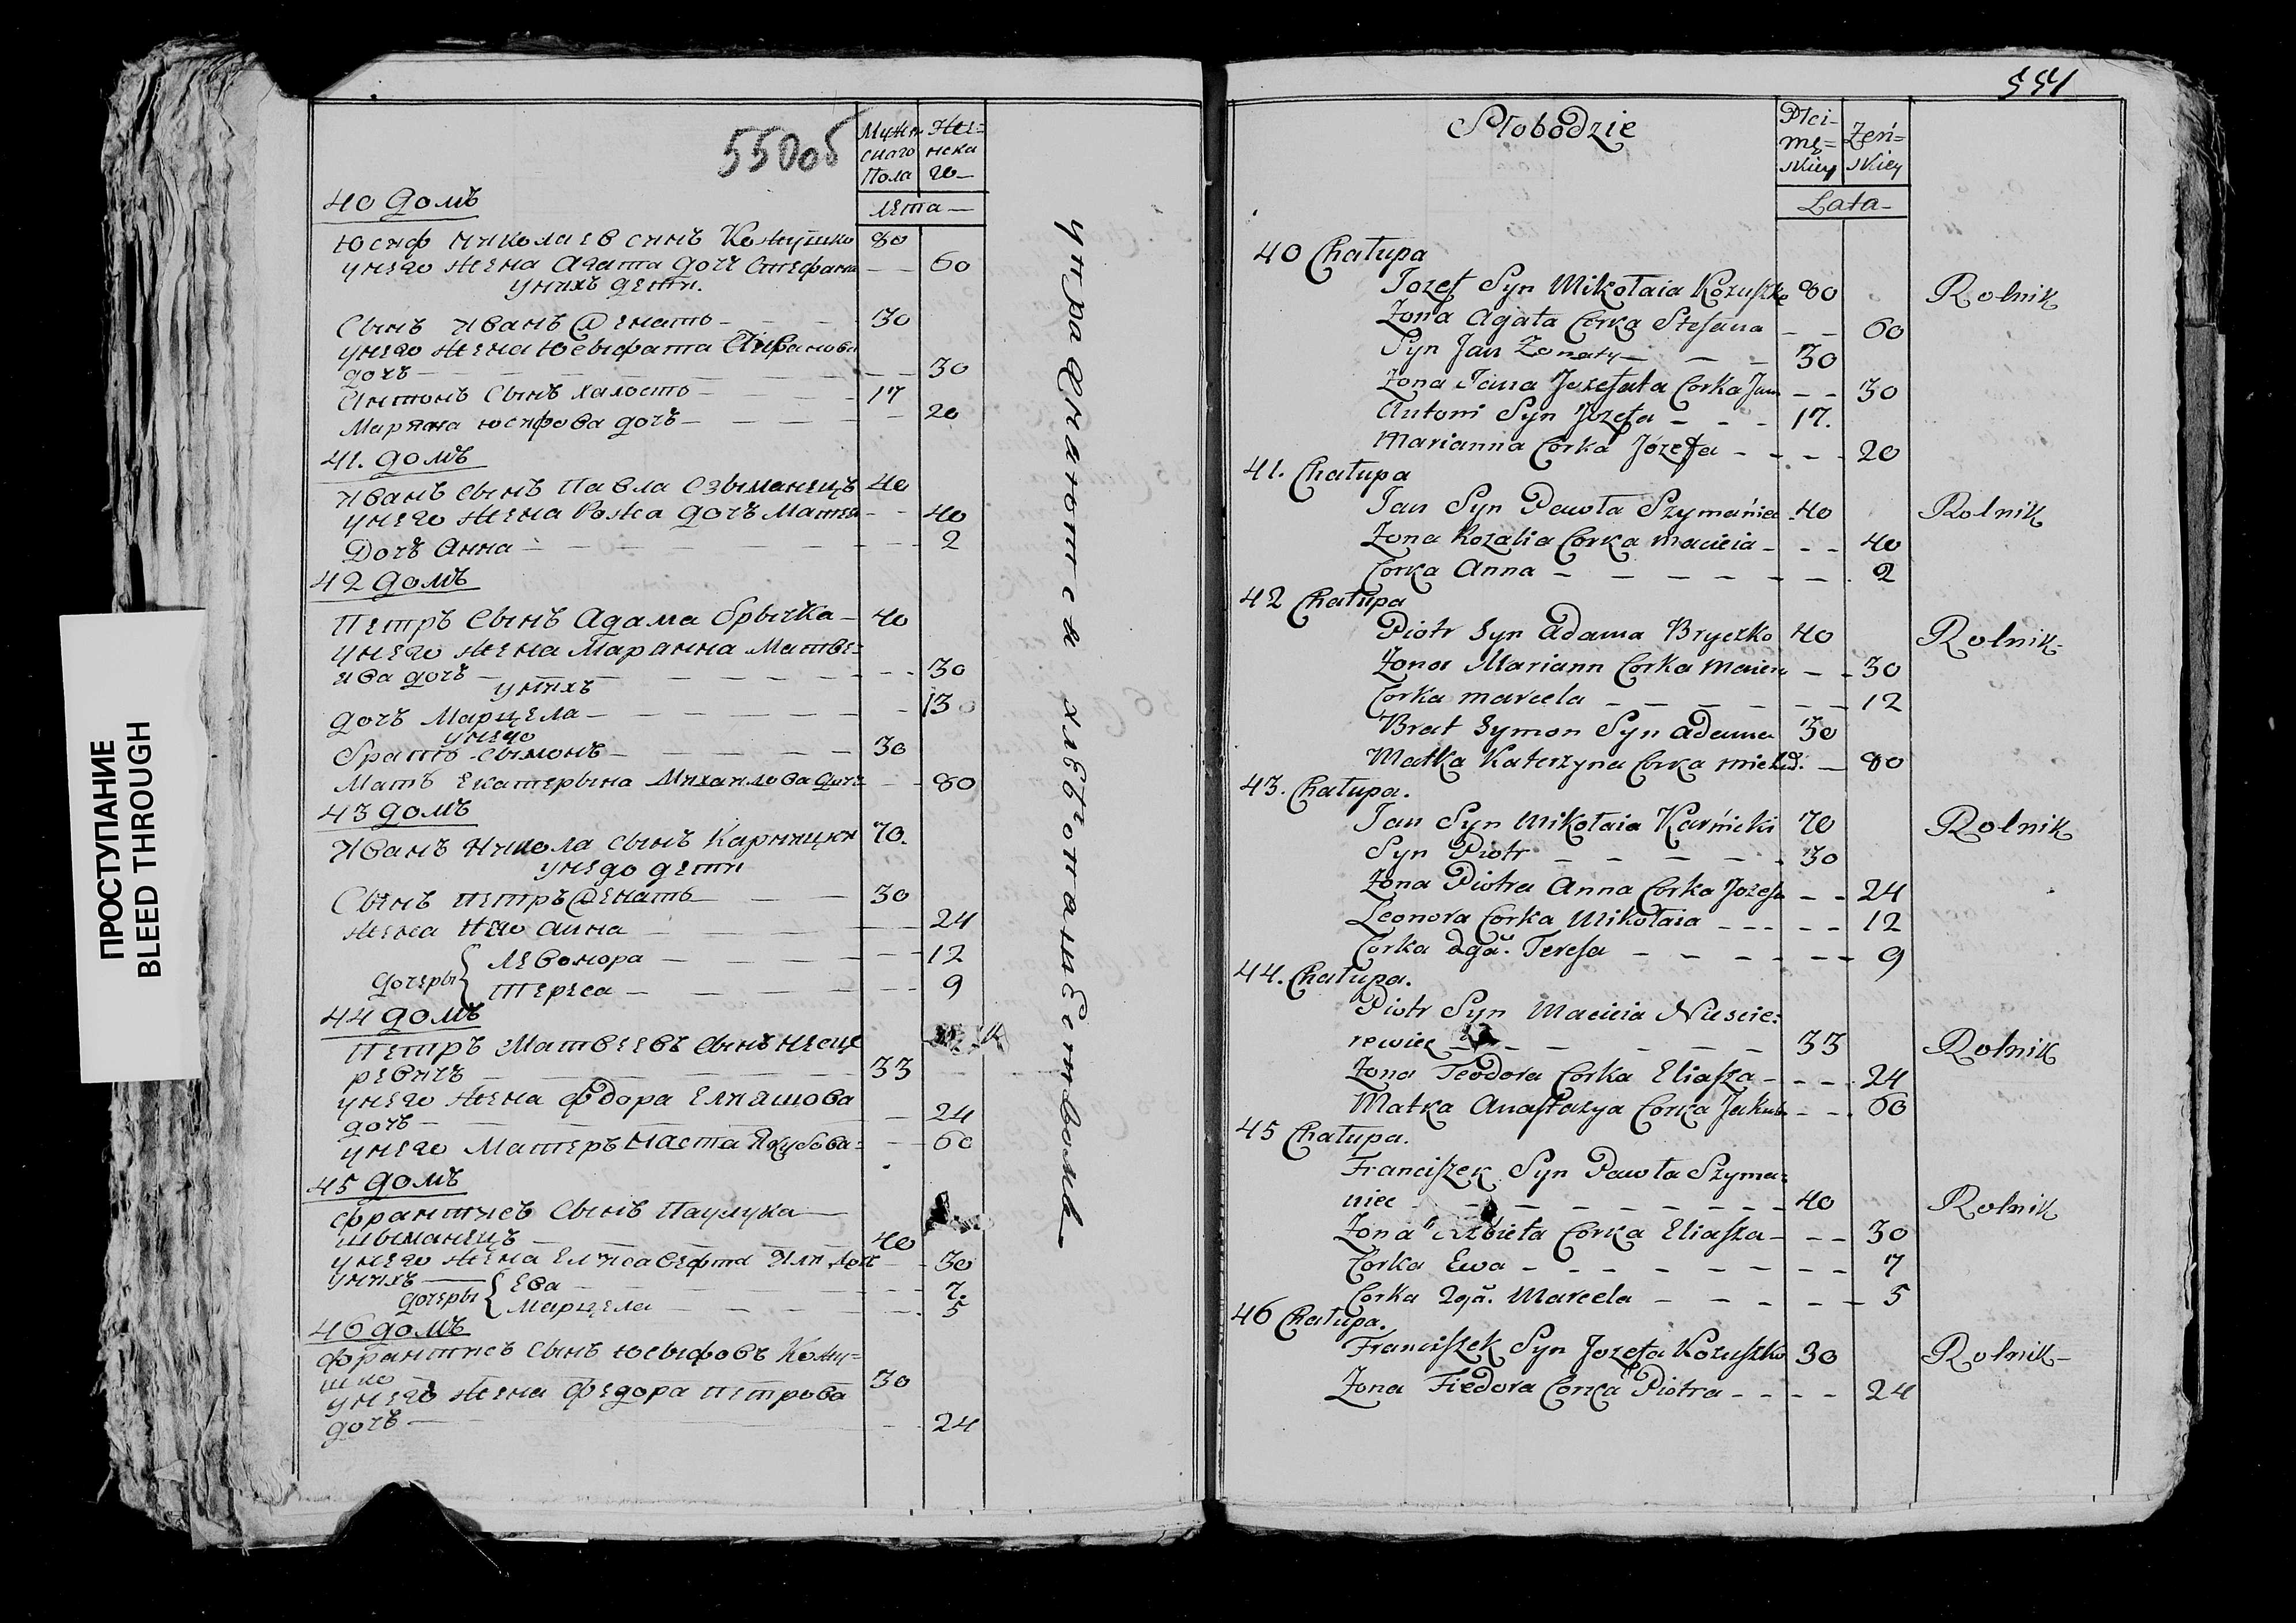 ПРОСТУПАНИЕ
BLEED THROUGH
550об
Мужескаго Пола
Женска го
лета
40 домъ
Юсиф Николаев синъ Кожушко 80
унего жена Агата доч Стефана 60
унихъ дети.
Сынъ Иванъ Женатъ 30
дочъ 30
Антонъ Сынъ халостъ 17
Марянна юсифова дочъ 20
41. домъ
Иванъ сынъ Павла Сзыманецъ 40
унего жена Рожа дочъ Матея 40
Дочъ Анна 2
42 домъ
Петръ Сынъ Адама брычка 40
унего жена Маранна Матве=
ива дочъ 30
унихъ
дочъ Марцела 13
унего
братъ Сымонъ 30
Матъ Екатерына Михаилова дочъ 80
43 домъ
Иванъ Никола сынъ Карницки 70.
унего дети
Сынъ петръ Женатъ 30
жена Его Анна 24
дочеры { Левонора 12
Тереса 9
44 домъ
Петръ Матвеевъ сынъ Несце
ревичъ 33
унего жена Фдора Елияшова
дочъ 24
унего Матеръ Наста Якубова= 60
45 домъ
Франтисъ Сынъ Паулука
шыманецъ 40
унего жена Елисавефта Или доч 30
унихъ дочеры { Ева 7.
Марцела 5
46 домъ
Франтисъ Сынъ Юсыфовъ Кожу=
шко 30
унего жена Федора петрова
дочъ 24
упражняются хлебопашествомъ
551
Słobodzie
Płci męskiey
Żeńskiey
Lata
40 Chałupa
Jozef Syn Mikołaia Kozuszko 80 Rolnik
Zona Agata Corka Stefana 60
Syn Jan Zonaty 30
Zona Jana Jozefata Corka Jana 30
Antoni Syn Jozefa 17.
Marianna Corka Józefa 20
41. Chałupa
Jan Syn Pawła Szymaniec 40 Rolnik
Zona Rozalia Corka Macieia 40
Corka Anna 2
42 Chałupa
Piotr Syn Adama Bryczko 40 Rolnik
Zona Mariann Corka Macieia 30
Corka Marcela 12
Brat Symon Syn Adama 30
Matka Katerzyna Corka Mich. 80
43. Chałupa.
Jan Syn Mikołaia Karnicki 70 Rolnik
Syn Piotr 30
Zona Piotra Anna Corka Jozefa 24
Leonora Corka Mikołaia 12
Corka 2gā. Teresa 9
44. Chałupa.
Piotr Syn Macieia Niescie=
rewicz 33 Rolnik
Zona Teodora Corka Eliasza 24
Matka Anastazya Corka Jakub. 60
45 Chałupa.
Franciszek Syn Pawła Szyma=
niec 40 Rolnik
Zona Elzbieta Corka Eliasza 30
Corka Ewa 7
Corka 2gā. Marcela 5
46 Chałupa.
Franciszek Syn Jozefa Kozuszko 30 Rolnik
Zona Fiedora Corka Piotra 24